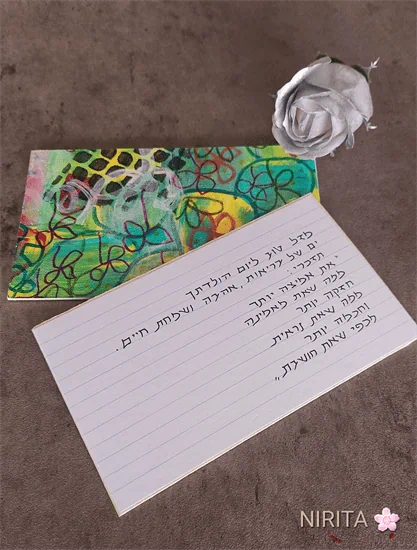 מזל טוב ליום הולדתך
ים של בריאות, אהבה ושמחת חיים.
תזכרי:
"את אמיצה יותר
ממה שאת מאמינה
חזקה יותר
ממה שאת נראית
וחכמה יותר
מכפי שאת חושבת"
NIRITA